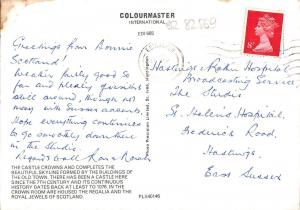 COLOURMASTER
INTERNATIONAL
EDI 980
Greetings from Bonnie
Scotland!
Weather fairly good so
far and plenty funsters
still around, though not
many with Sussex accents
Hope everything continues
to go smoothly down there
in the Studio.
Regards to all
Hastings & Rother Hospital
Broadcasting Service
The Studio
St. Helens Hospital,
Frederick Road,
Hastings,
East Sussex
THE CASTLE CROWNS AND COMPLETES THE
BEAUTIFUL SKYLINE FORMED BY THE BUILDINGS
OF THE OLD TOWN. THERE HAS BEEN A CASTLE HERE
SINCE THE 7TH CENTURY AND ITS CONTINUOUS
HISTORY DATES BACK AT LEAST TO 1076. IN THE
CROWN ROOM ARE HOUSED THE REGALIA AND THE
ROYAL JEWELS OF SCOTLAND.
PLX40146